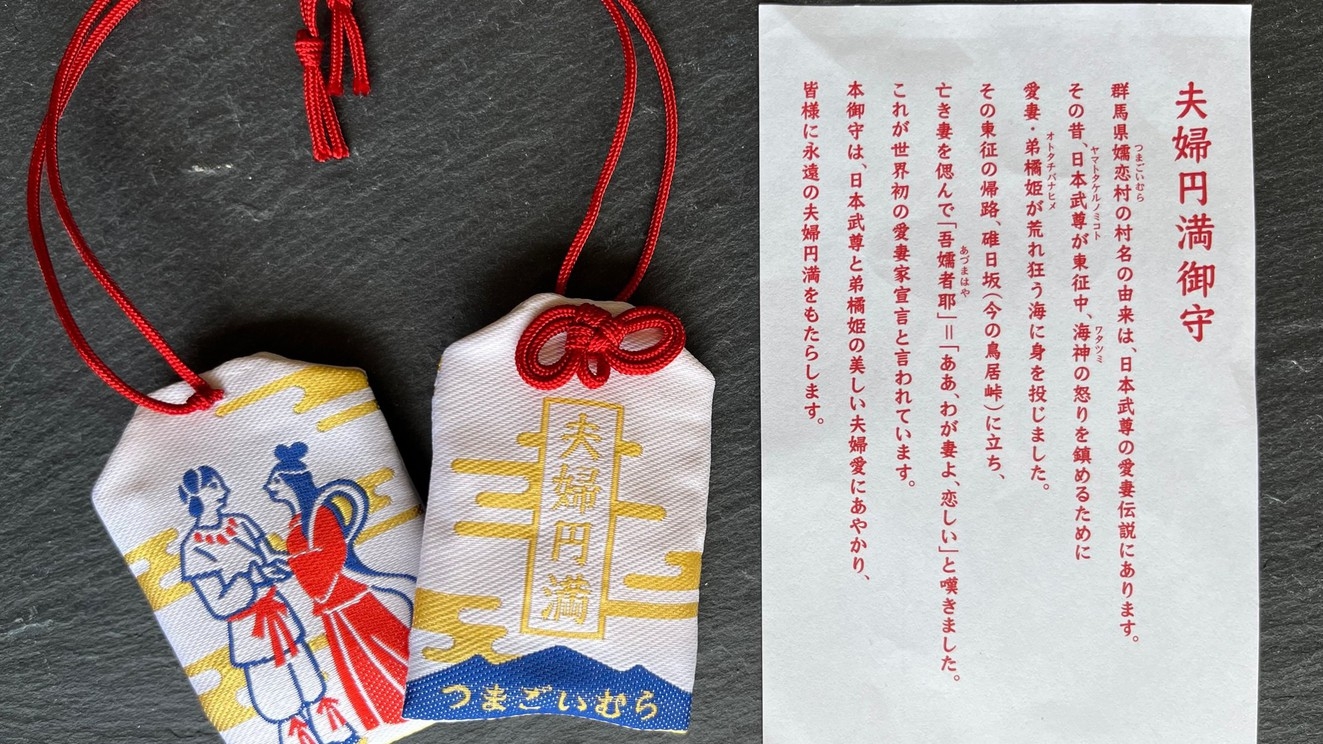 夫婦円満
つまごいむら
夫婦円満御守
群馬県嬬恋村の村名の由来は、日本武尊の愛妻伝説にあります。
つまごいむら
その昔、日本武尊が東征中、海神の怒りを鎮めるために
ヤマトタケルノミコト
ワタツミ
愛妻・弟橘姫が荒れ狂う海に身を投じました。
オトタチバナヒメ
その東征の帰路、碓日坂(今の鳥居峠)に立ち、
亡き妻を偲んで「吾嬬者耶」＝「ああ、わが妻よ、恋しい」と嘆きました。
あづまはや
これが世界初の愛妻家宣言と言われています。
本御守は、日本武尊と弟橘姫の美しい夫婦愛にあやかり、
皆様に永遠の夫婦円満をもたらします。